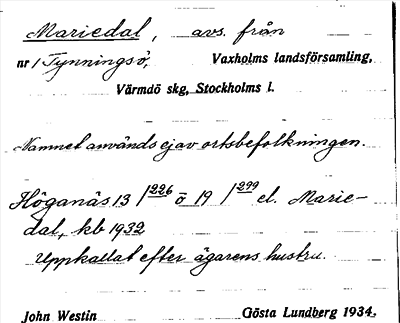 Mariedal, avs. från
nr 1 Tynningsö, Vaxholms landsförsamling,
Värmdö skg, Stockholms l.
Namnet används ej av ortsbefolkningen.
Höganäs 13 1/226 o 19 1/299 el. Marie-
dal, kb 1932
Uppkallat efter ägarens hustru.
John Westin Gösta Lundberg 1934.